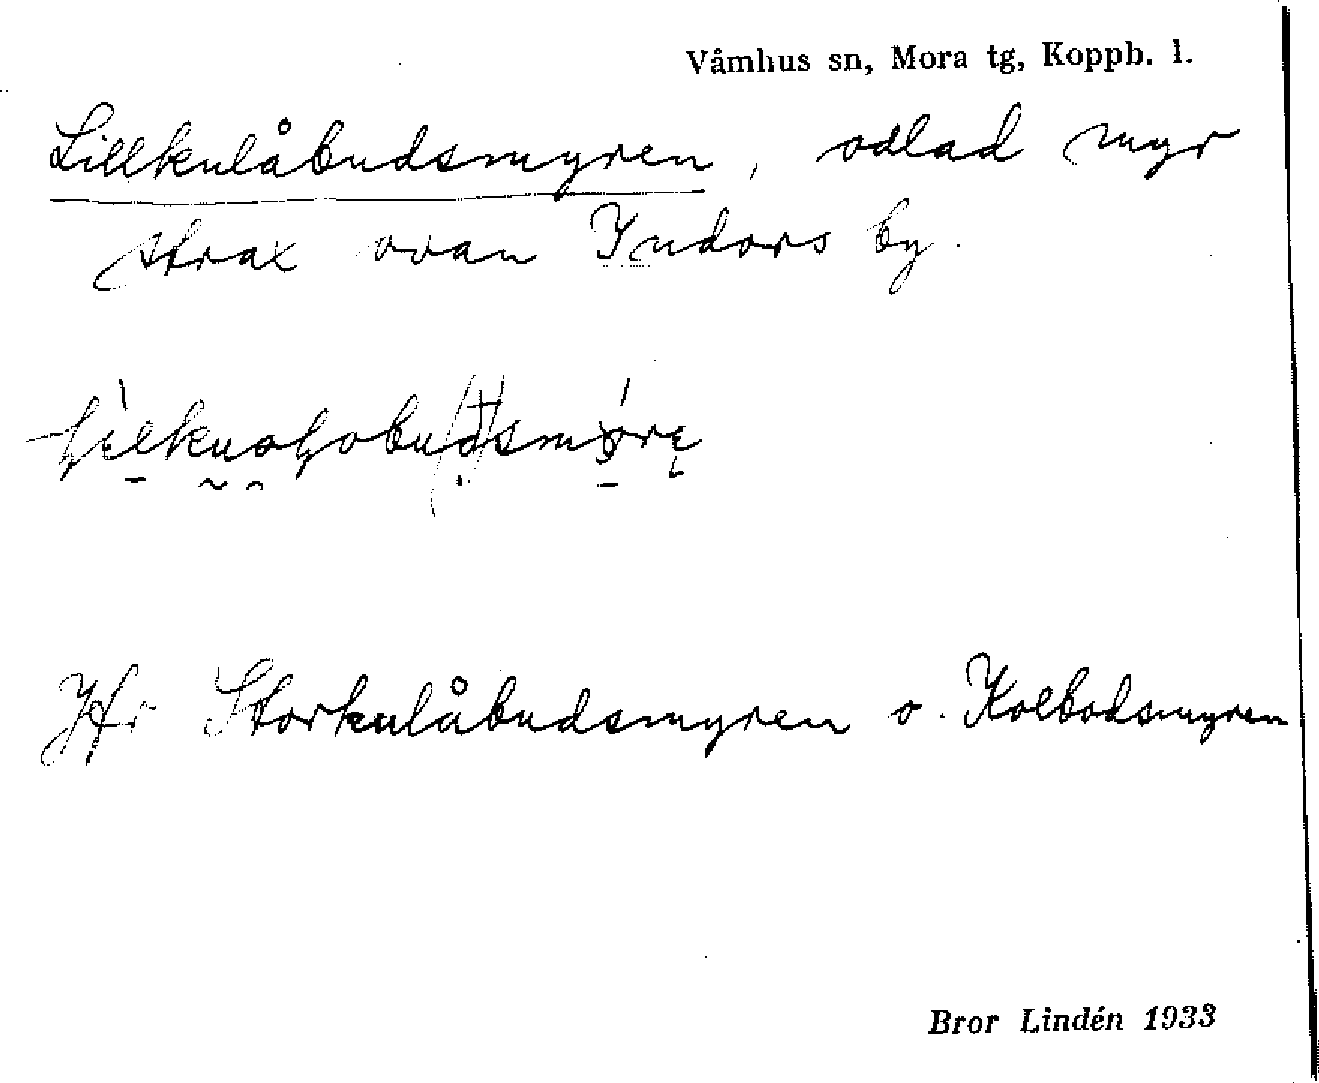 Våmhus sn, Mora tg, Koppb. l.
Lillkulåbudsmyren, odlad myr
strax ovan Indors by.
Jfr Storkulåbudsmyren o. Kolbodsmyren
Bror Lindén 1933